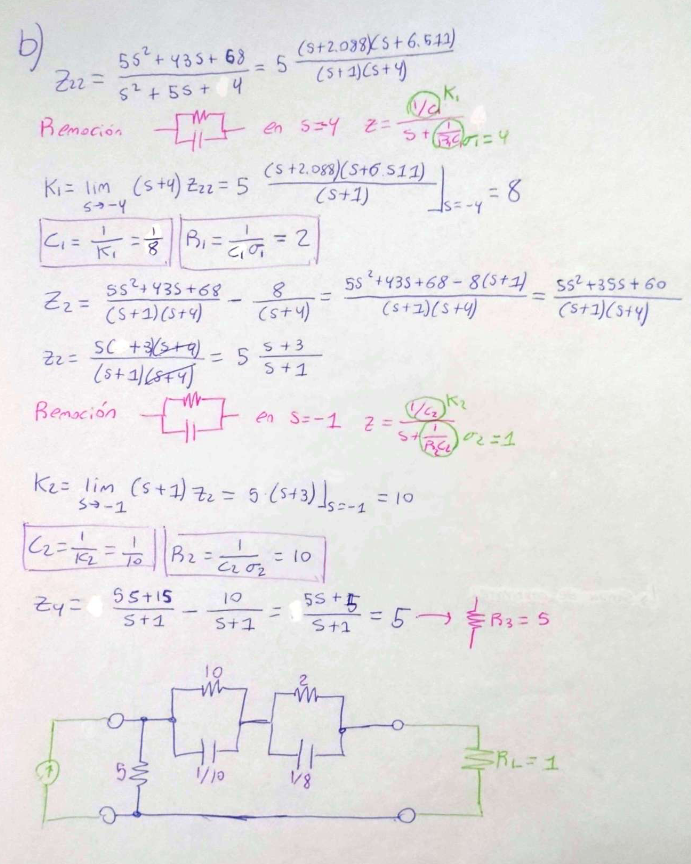 b)
Z22 = (5s² + 43s + 68)/(s² + 5s + 4) = 5 (s+2.088)(s+6.511)/((s+1)(s+4))
Remoción en s=4 z = (1/C1)/(s + 1/(R1C1)) K1 σ1 = 4
K1 = lim s→-4 (s+4) Z22 = 5 (s+2.088)(s+6.511)/(s+1) |s=-4 = 8
C1 = 1/K1 = 1/8 R1 = 1/(C1σ1) = 2
Z2 = (5s²+43s+68)/((s+1)(s+4)) - 8/(s+4) = (5s²+43s+68-8(s+1))/((s+1)(s+4)) = (5s²+35s+60)/((s+1)(s+4))
Z2 = 5( +3)(s+4)/((s+1)(s+4)) = 5 (s+3)/(s+1)
Remoción en s=-1 z = (1/C2)/(s + 1/(R2C2)) K2 σ2 = 1
K2 = lim s→-1 (s+1) Z2 = 5·(s+3)|s=-1 = 10
C2 = 1/K2 = 1/10 R2 = 1/(C2 σ2) = 10
Z4 = (5s+15)/(s+1) - 10/(s+1) = (5s+5)/(s+1) = 5 → R3 = 5
10 2
5 1/10 1/8 RL = 1